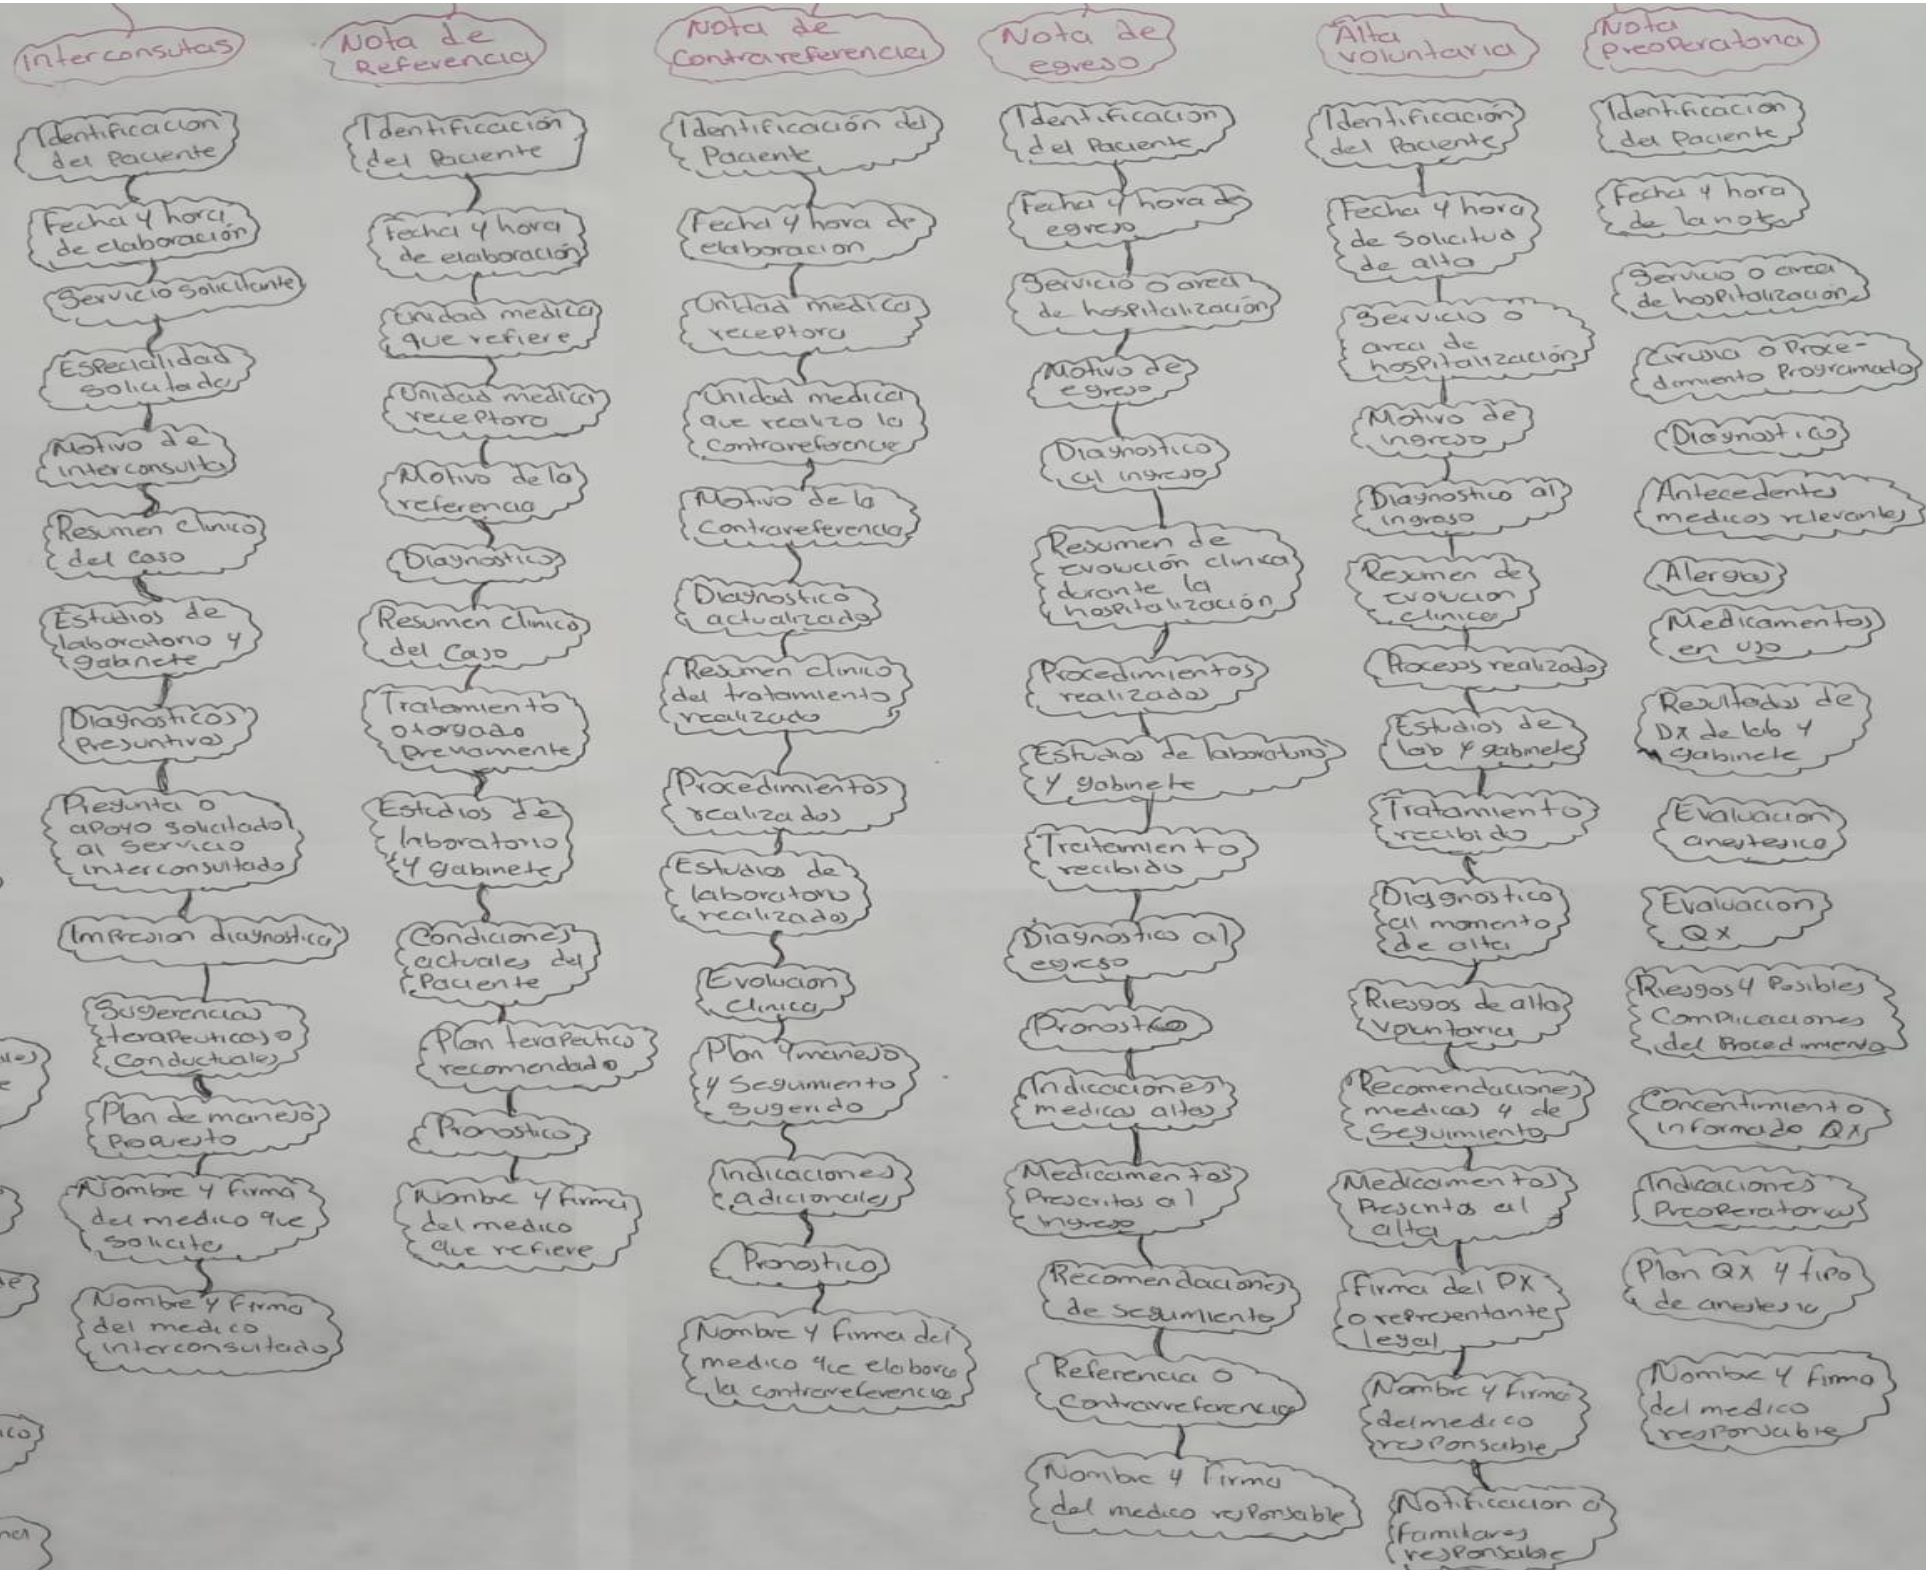 Interconsutas
Identificacion
del Paciente
Fecha y hora
de elaboración
Servicio solicitante
Especialidad
solicitada
Motivo de
interconsulta
Resumen clinico
del caso
Estudios de
laboratorio y
gabinete
Diagnosticos
Presuntivos
Pregunta o
apoyo solicitado
al servicio
interconsultado
Impresion diagnostica
Sugerencias
terapeuticas o
conductuales
Plan de manejo
Propuesto
Nombre y firma
del medico que
solicita
Nombre y firma
del medico
interconsultado
Nota de
Referencia
Identificación
del Paciente
Fecha y hora
de elaboración
Unidad medica
que refiere
Unidad medica
receptora
Motivo de la
referencia
Diagnostico
Resumen clinico
del caso
Tratamiento
otorgado
previamente
Estudios de
laboratorio
y gabinete
Condiciones
actuales del
Paciente
Plan terapeutico
recomendado
Pronostico
Nombre y firma
del medico
que refiere
Nota de
Contrareferencia
Identificación del
Paciente
Fecha y hora de
elaboracion
Unidad medica
receptora
Unidad medica
que realizo la
contrareferencia
Motivo de la
contrareferencia
Diagnostico
actualizado
Resumen clinico
del tratamiento
realizado
Procedimientos
realizados
Estudios de
laboratorio
realizados
Evolucion
clinica
Plan y manejo
y seguimiento
sugerido
Indicaciones
adicionales
Pronostico
Nombre y firma del
medico que elaboro
la contrareferencia
Nota de
egreso
Identificacion
del Paciente
Fecha y hora de
egreso
Servicio o area
de hospitalización
Motivo de
egreso
Diagnostico
al ingreso
Resumen de
evolución clinica
durante la
hospitalización
Procedimientos
realizados
Estudios de laboratorio
y gabinete
Tratamiento
recibido
Diagnostico al
egreso
Pronostico
Indicaciones
medicas altas
Medicamentos
Prescritos al
ingreso
Recomendaciones
de seguimiento
Referencia o
contrarreferencia
Nombre y firma
del medico responsable
Alta
voluntaria
Identificación
del Paciente
Fecha y hora
de solicitud
de alta
Servicio o
area de
hospitalización
Motivo de
ingreso
Diagnostico al
ingreso
Resumen de
evolucion
clinica
Procesos realizado
Estudios de
lab y gabinete
Tratamiento
recibido
Diagnostico
al momento
de alta
Riesgos de alta
voluntaria
Recomendaciones
medicas y de
seguimiento
Medicamentos
Prescritos al
alta
Firma del PX
o representante
legal
Nombre y firma
del medico
responsable
Notificacion a
familiares
responsable
Nota
preoperatoria
Identificacion
del Paciente
Fecha y hora
de la nota
Servicio o area
de hospitalización
Cirugia o Proce-
dimiento Programado
Diagnostico
Antecedentes
medicos relevantes
Alergias
Medicamentos
en uso
Resultados de
DX de lab y
gabinete
Evaluacion
anestesica
Evaluacion
QX
Riesgos y Posibles
Complicaciones
del Procedimiento
Concentimiento
informado QX
Indicaciones
Preoperatorias
Plan QX y tipo
de anestesia
Nombre y firma
del medico
responsable